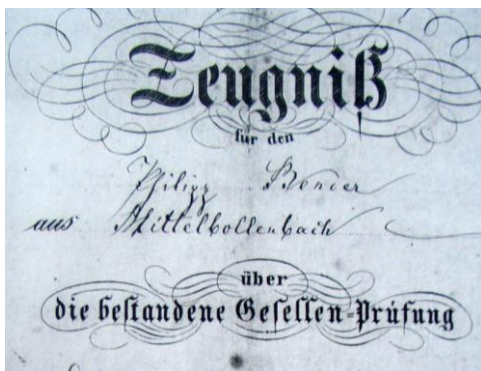 Zeugniß
für den
Philipp Bencer
aus Mittelbollenbach
über
die bestandene Gesellen-Prüfung